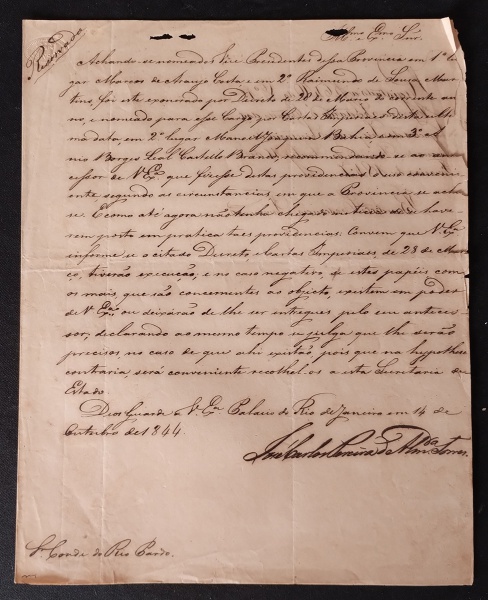 Reservado
Illmo e Exmo Snr.
Achando-se nomeados Vice Presidentes dessa Provincia em 1º lu
gar Marcos de Araujo Costa e em 2º Raimundo de Souza Mar
tins, foi este exonerado por Decreto de 28 de Março do corrente an
no, e nomeado para esse Cargo por Carta Imperial desta
data, em 2º lugar Manoel e em 3º
nio Borges Leal Castello Branco, recommendando-se ao
cessor de V. Exª. que fizesse destas providencias o uso conveni
ente, segundo as circunstancias em que a Provincia se achas
se. E como até agora não tenha chegado noticia de se have
rem posto em pratica taes providencias: Convem que V. Exª
informe se o citado Decreto, e Cartas Imperiaes de 28 de Mar
ço, tiverão execução, e no caso negativo, se estes papeis com
os mais, que são concernentes ao objecto, existem em poder
de V. Exª. ou deixárão de lhe ser entregues pelo seu anteces
sor, declarando ao mesmo tempo se julga que lhe serão
precisos, no caso de que ahi existão, pois que na hypothese
contraria, será conveniente recolhel-os a esta Secretaria de
Estado.
Deos Guarde a V. Exª. Palacio do Rio de Janeiro em 14 de
Outubro de 1844.
José Carlos Pereira d'Almda Torres.
Sr Conde do Rio Pardo.